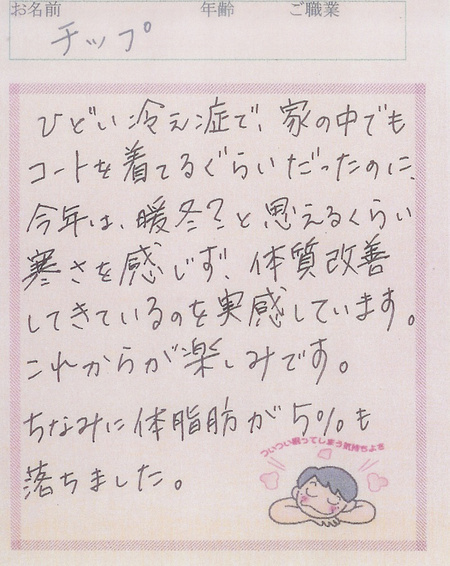 お名前 年齢 ご職業
チップ
ひどい冷え症で、家の中でも
コートを着てるぐらいだったのに、
今年は、暖冬？と思えるくらい
寒さを感じず、体質改善
してきているのを実感しています。
これからが楽しみです。
ちなみに体脂肪が5%も
落ちました。
ついつい眠ってしまう気持ちよさ